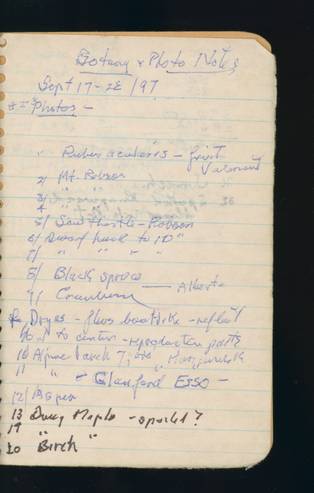 Botany & Photo Notes
Sept 17-22/97
Photos -
1. Rubus acaulis - first
Valemount
2/ Mt. Robson
3/ "
4
5/ Sow thistle - Robson
6/ Dwarf hawk to ID"
7/ " " " "
8/ Black spruce
Alberta
9/ Cranberry
Dryas - flws boatlike - reflect
to center - reproductive parts
10 Alpine Larch
11 " " - Glassford ESSO -
12/ Aspen
13 Doug Maple - spoiled?
19
20 "Birch"